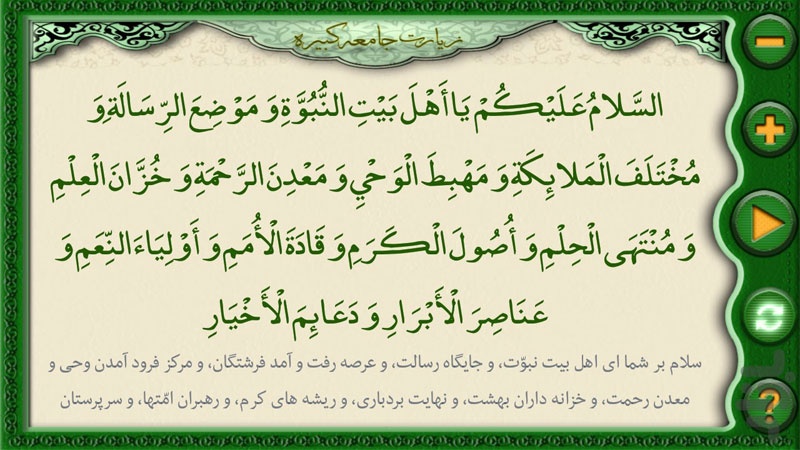 زیارت جامعه کبیره
السَّلامُ عَلَيْكُمْ يَا أَهْلَ بَيْتِ النُّبُوَّةِ وَ مَوْضِعَ الرِّسَالَةِ وَ
مُخْتَلَفَ الْمَلائِكَةِ وَ مَهْبِطَ الْوَحْيِ وَ مَعْدِنَ الرَّحْمَةِ وَ خُزَّانَ الْعِلْمِ
وَ مُنْتَهَى الْحِلْمِ وَ أُصُولَ الْكَرَمِ وَ قَادَةَ الْأُمَمِ وَ أَوْلِيَاءَ النِّعَمِ وَ
عَنَاصِرَ الْأَبْرَارِ وَ دَعَائِمَ الْأَخْيَارِ
سلام بر شما ای اهل بیت نبوّت، و جایگاه رسالت، و عرصه رفت و آمد فرشتگان، و مرکز فرود آمدن وحی و
معدن رحمت، و خزانه داران بهشت، و نهایت بردباری، و ریشه های کرم، و رهبران امّتها، و سرپرستان